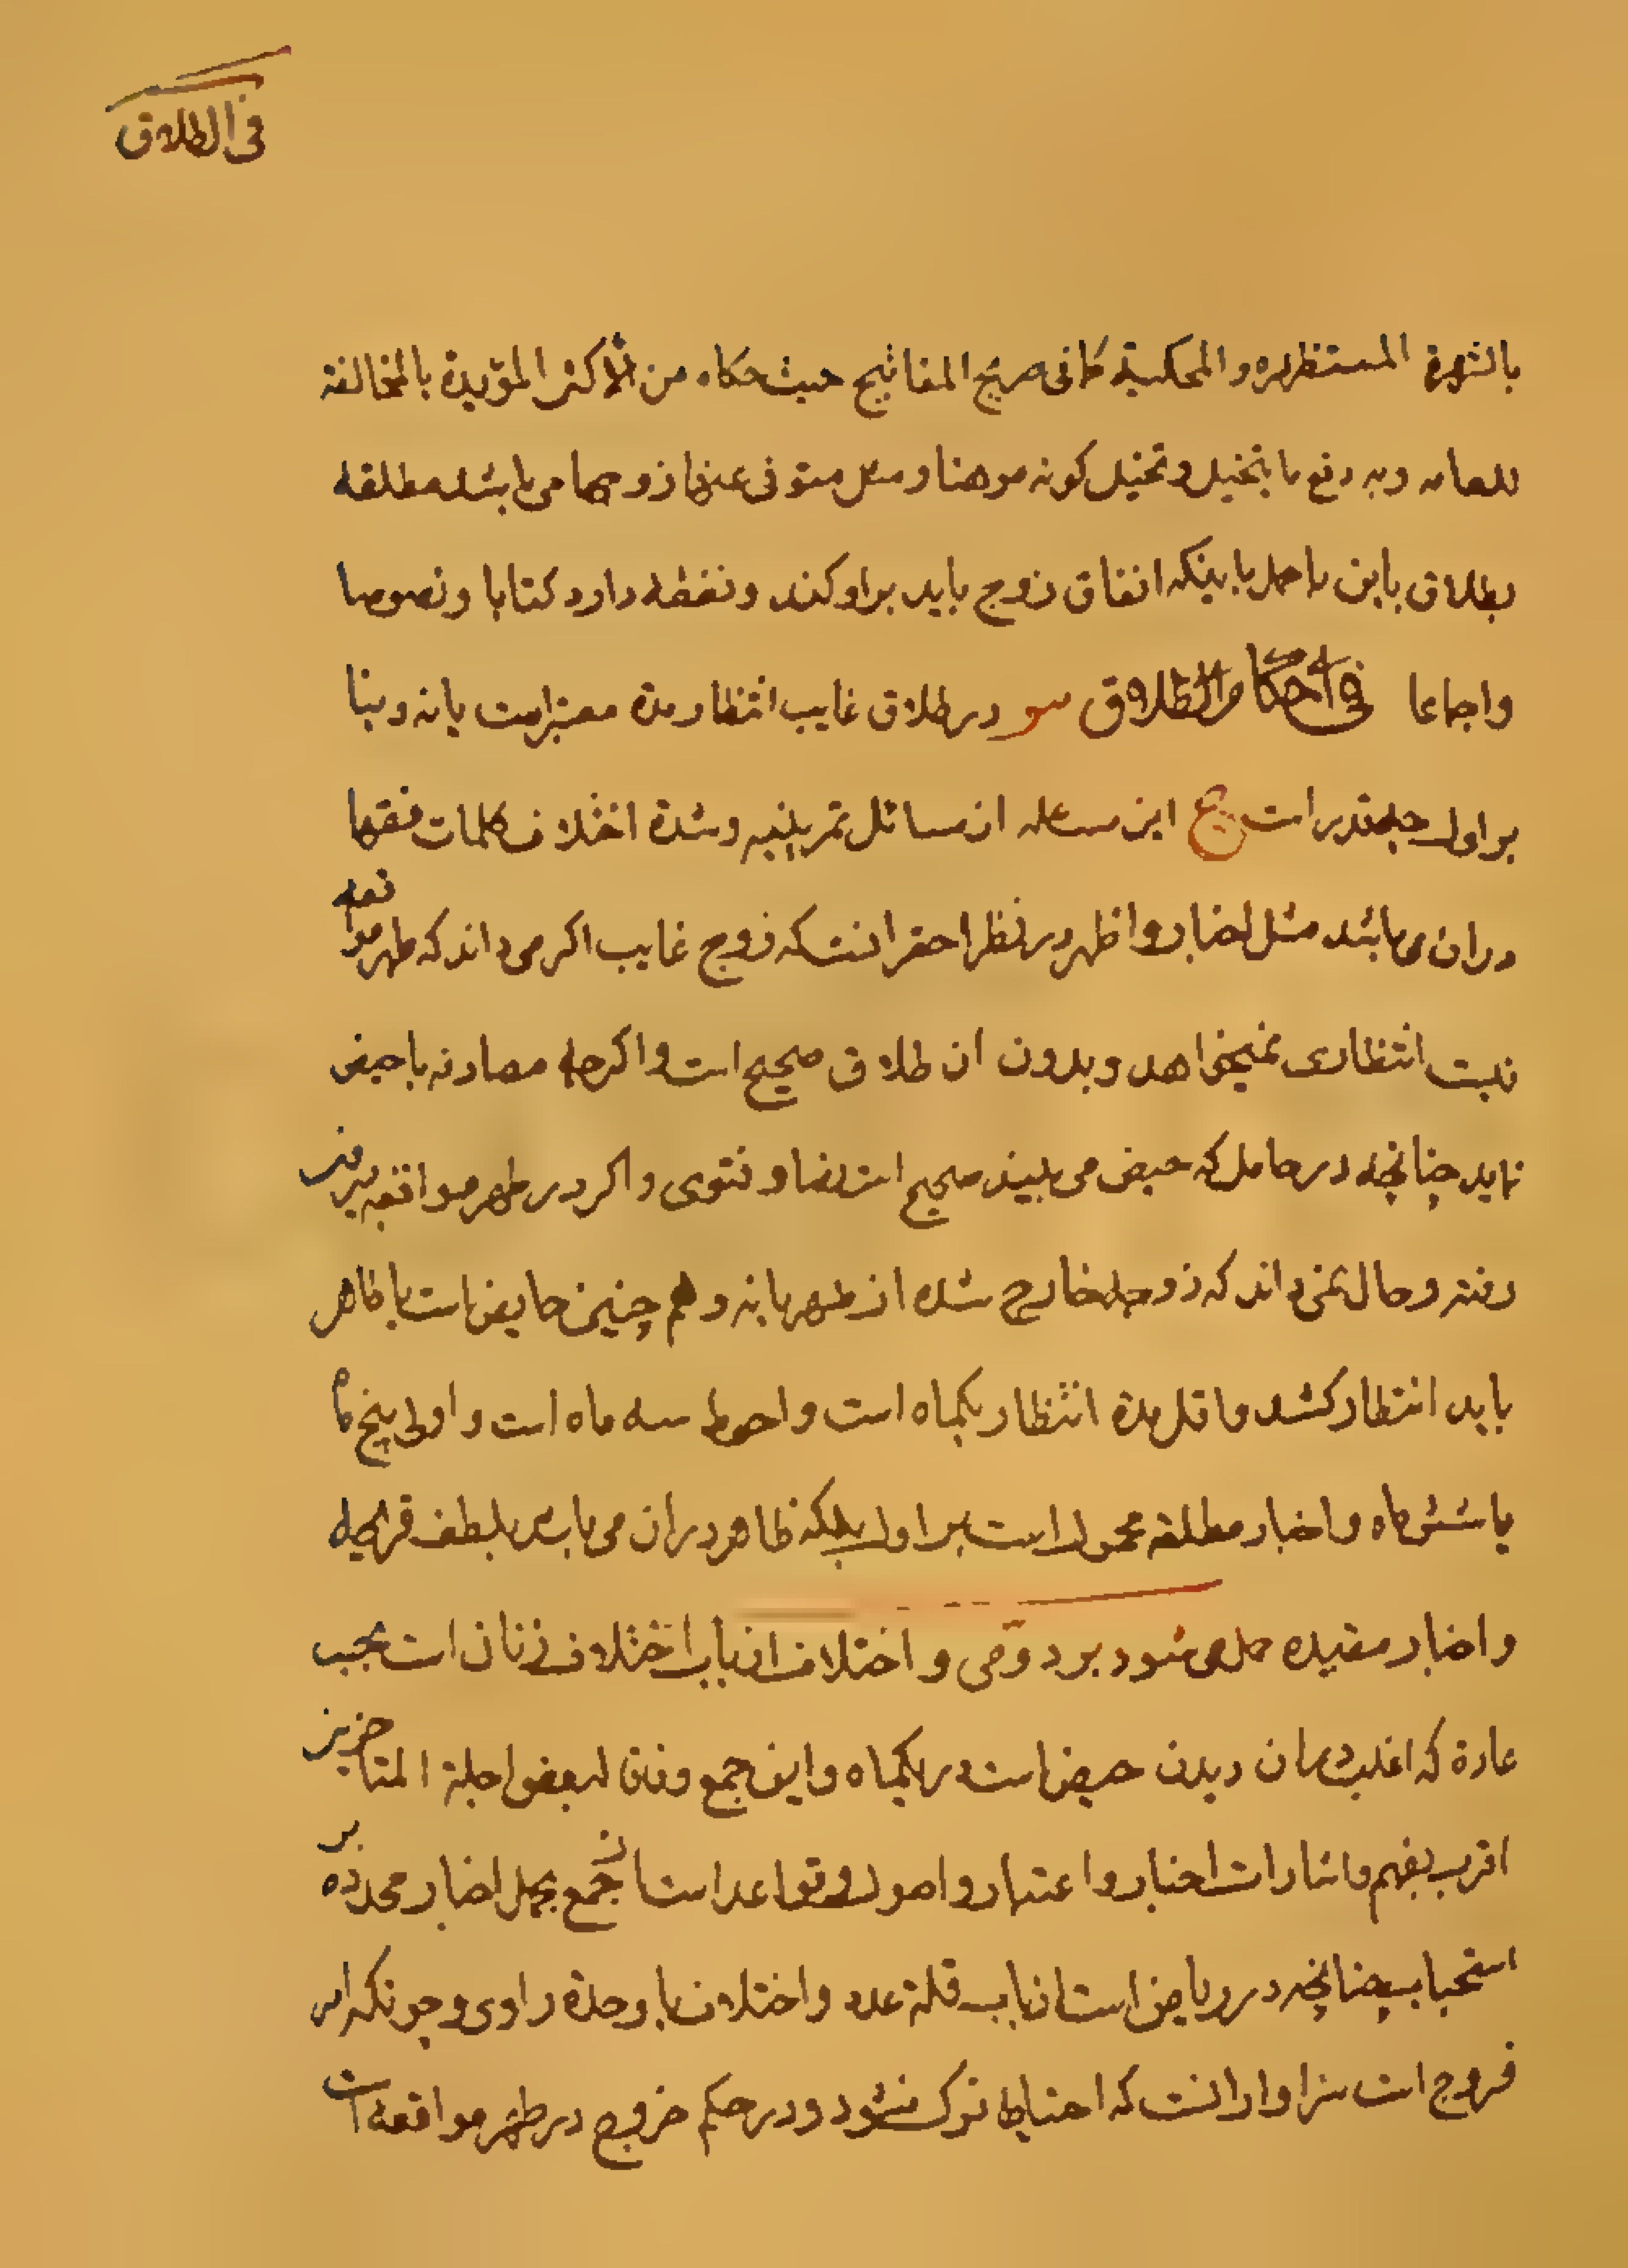 فی الطلاق
بالشهرة المستظهره والمحکیة کما فی صریح المفاتیح حیث حکاه من الاکثر المؤیدة بالمخالفة
للعامه وبه دفع ما یتخیل وتخیل کونه موهنا ومثل متوفی عنها زوجها می باشد مطلقه
بطلاق باین با حمل باینکه انفاق زوج باید براو کند ونفقه دارد کتابا ونصوصا
واجماعا فی احکام الطلاق سو در طلاق غایب انتظار مدة معتبر است یا نه وبنا
بر اول چه قدر است ج این مسئله از مسائل تمرینیه وشدة اختلاف کلمات فقها
در ان می باشد مثل اخبار واظهر در نظر احقر انست که زوج غایب اکر می داند که طهر مواقعه
نیست انتظاری نمیخواهد وبدون ان طلاق صحیح است واکر چه مصادفه با حیض
نماید چنانچه در حامل که حیض می بیند صحیح است نصا وفتوی واکر در طهر مواقعه بیرون
رفته وحال نمی داند که زوجه خارج شده از طهر یا نه وهم چنین حایض است یا طاهر
باید انتظار کشد واقل مدة انتظار یکماه است واحوط سه ماه است واولی پنج ماه
یا شش ماه واخبار مطلقه محمول است بر اول بلکه ظاهر در ان می باشد بلطف قریحه
واخبار مقیده حمل می شود بر دومی واختلاف از باب اختلاف زنان است بحسب
عادة که اغلب دیدن حیض است در یکماه واین جمع وفاقا لبعض اجلة المتاخرین
اقرب بفهم واشارات اخبار واعتبار واصول وقواعد است از جمع بحمل اخبار محدده بر
استحباب چنانچه در ریاض است از باب قلة عدد واختلاف با وحدة راوی وچونکه امر
فروج است سزاوار انست که احتیاط ترک نشود ودر حکم خروج در طهر مواقعه است